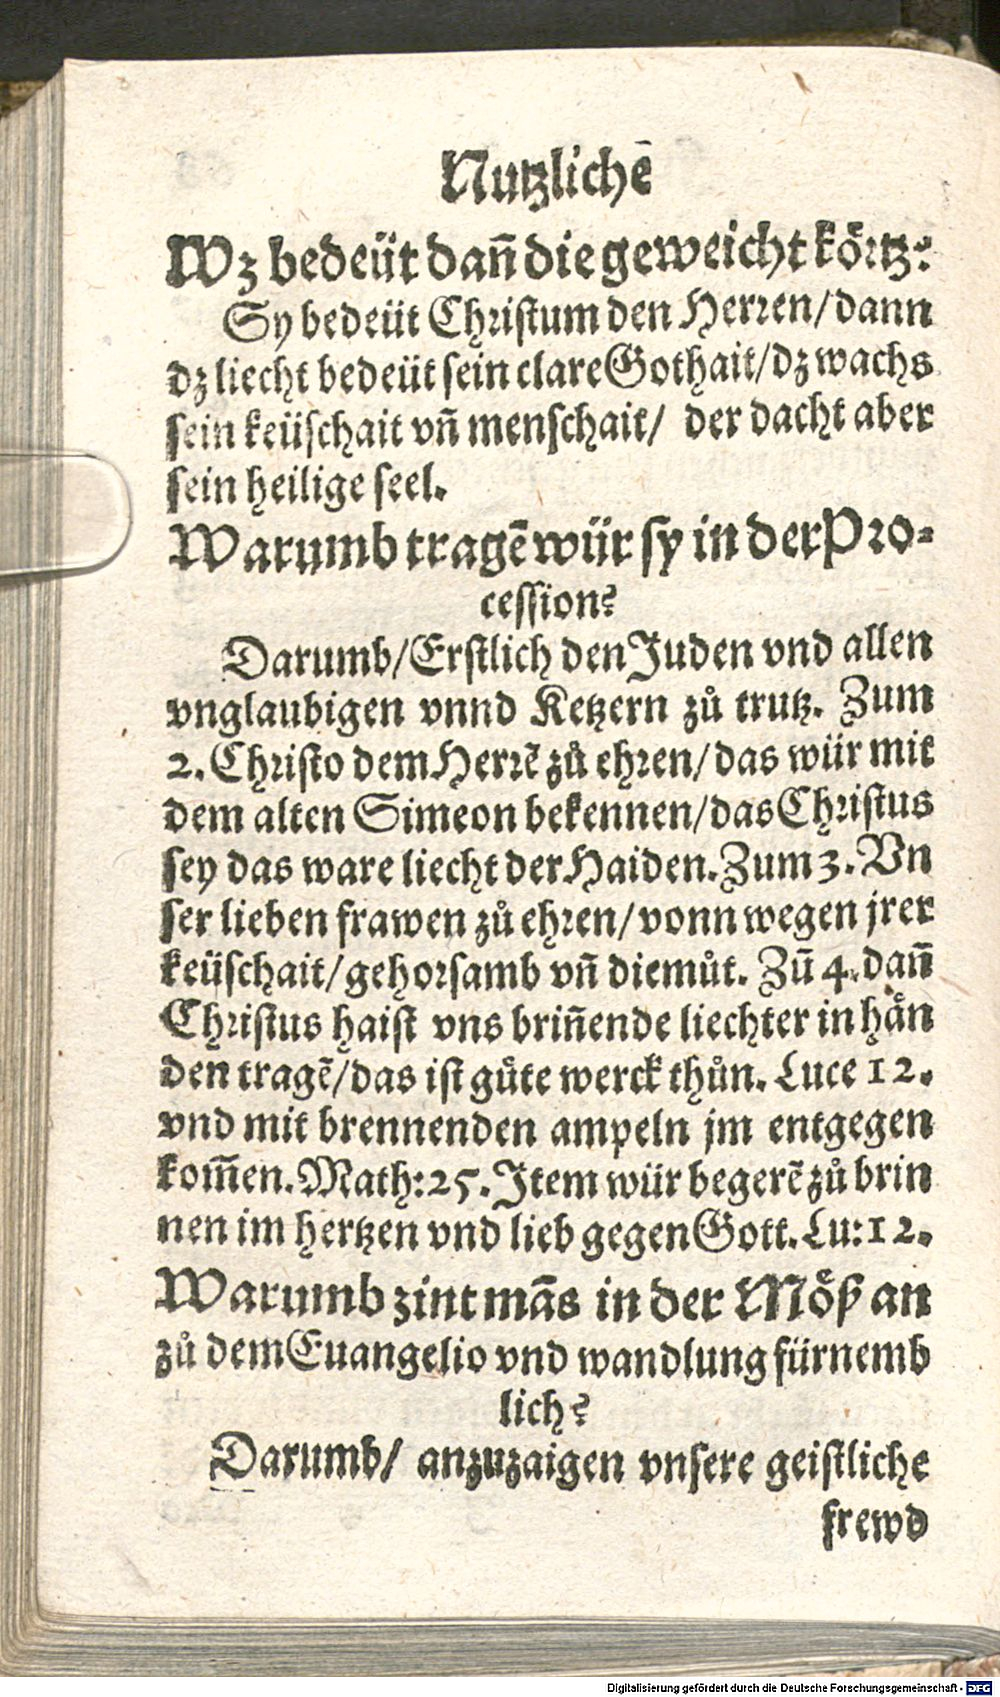 Nutzlichē
Wz bedeüt dañ die geweicht körtz?
Sy bedeüt Christum den Herren/dann
dz liecht bedeüt sein clare Gothait/dz wachs
sein keüschait vñ menschait/ der dacht aber
sein heilige seel.
Warumb tragē wür sy in der Pro-
cession?
Darumb/Erstlich den Juden vnd allen
vnglaubigen vnnd Ketzern zů trutz. Zum
2. Christo dem Herrē zů ehren/das wür mit
dem alten Simeon bekennen/das Christus
sey das ware liecht der Haiden. Zum 3. Vn
ser lieben frawen zů ehren/vonn wegen jrer
keüschait/gehorsamb vñ diemůt. Zū 4. dañ
Christus haist vns briñende liechter in hån
den tragē/das ist gůte werck thůn. Luce 12.
vnd mit brennenden ampeln jm entgegen
kom̃en. Math: 25. Item wür begerē zů brin
nen im hertzen vnd lieb gegen Gott. Lu: 12.
Warumb zint mãs in der Möß an
zů dem Euangelio vnd wandlung fürnemb
lich?
Darumb/ anzuzaigen vnsere geistliche
frewd
Digitalisierung gefördert durch die Deutsche Forschungsgemeinschaft - DFG